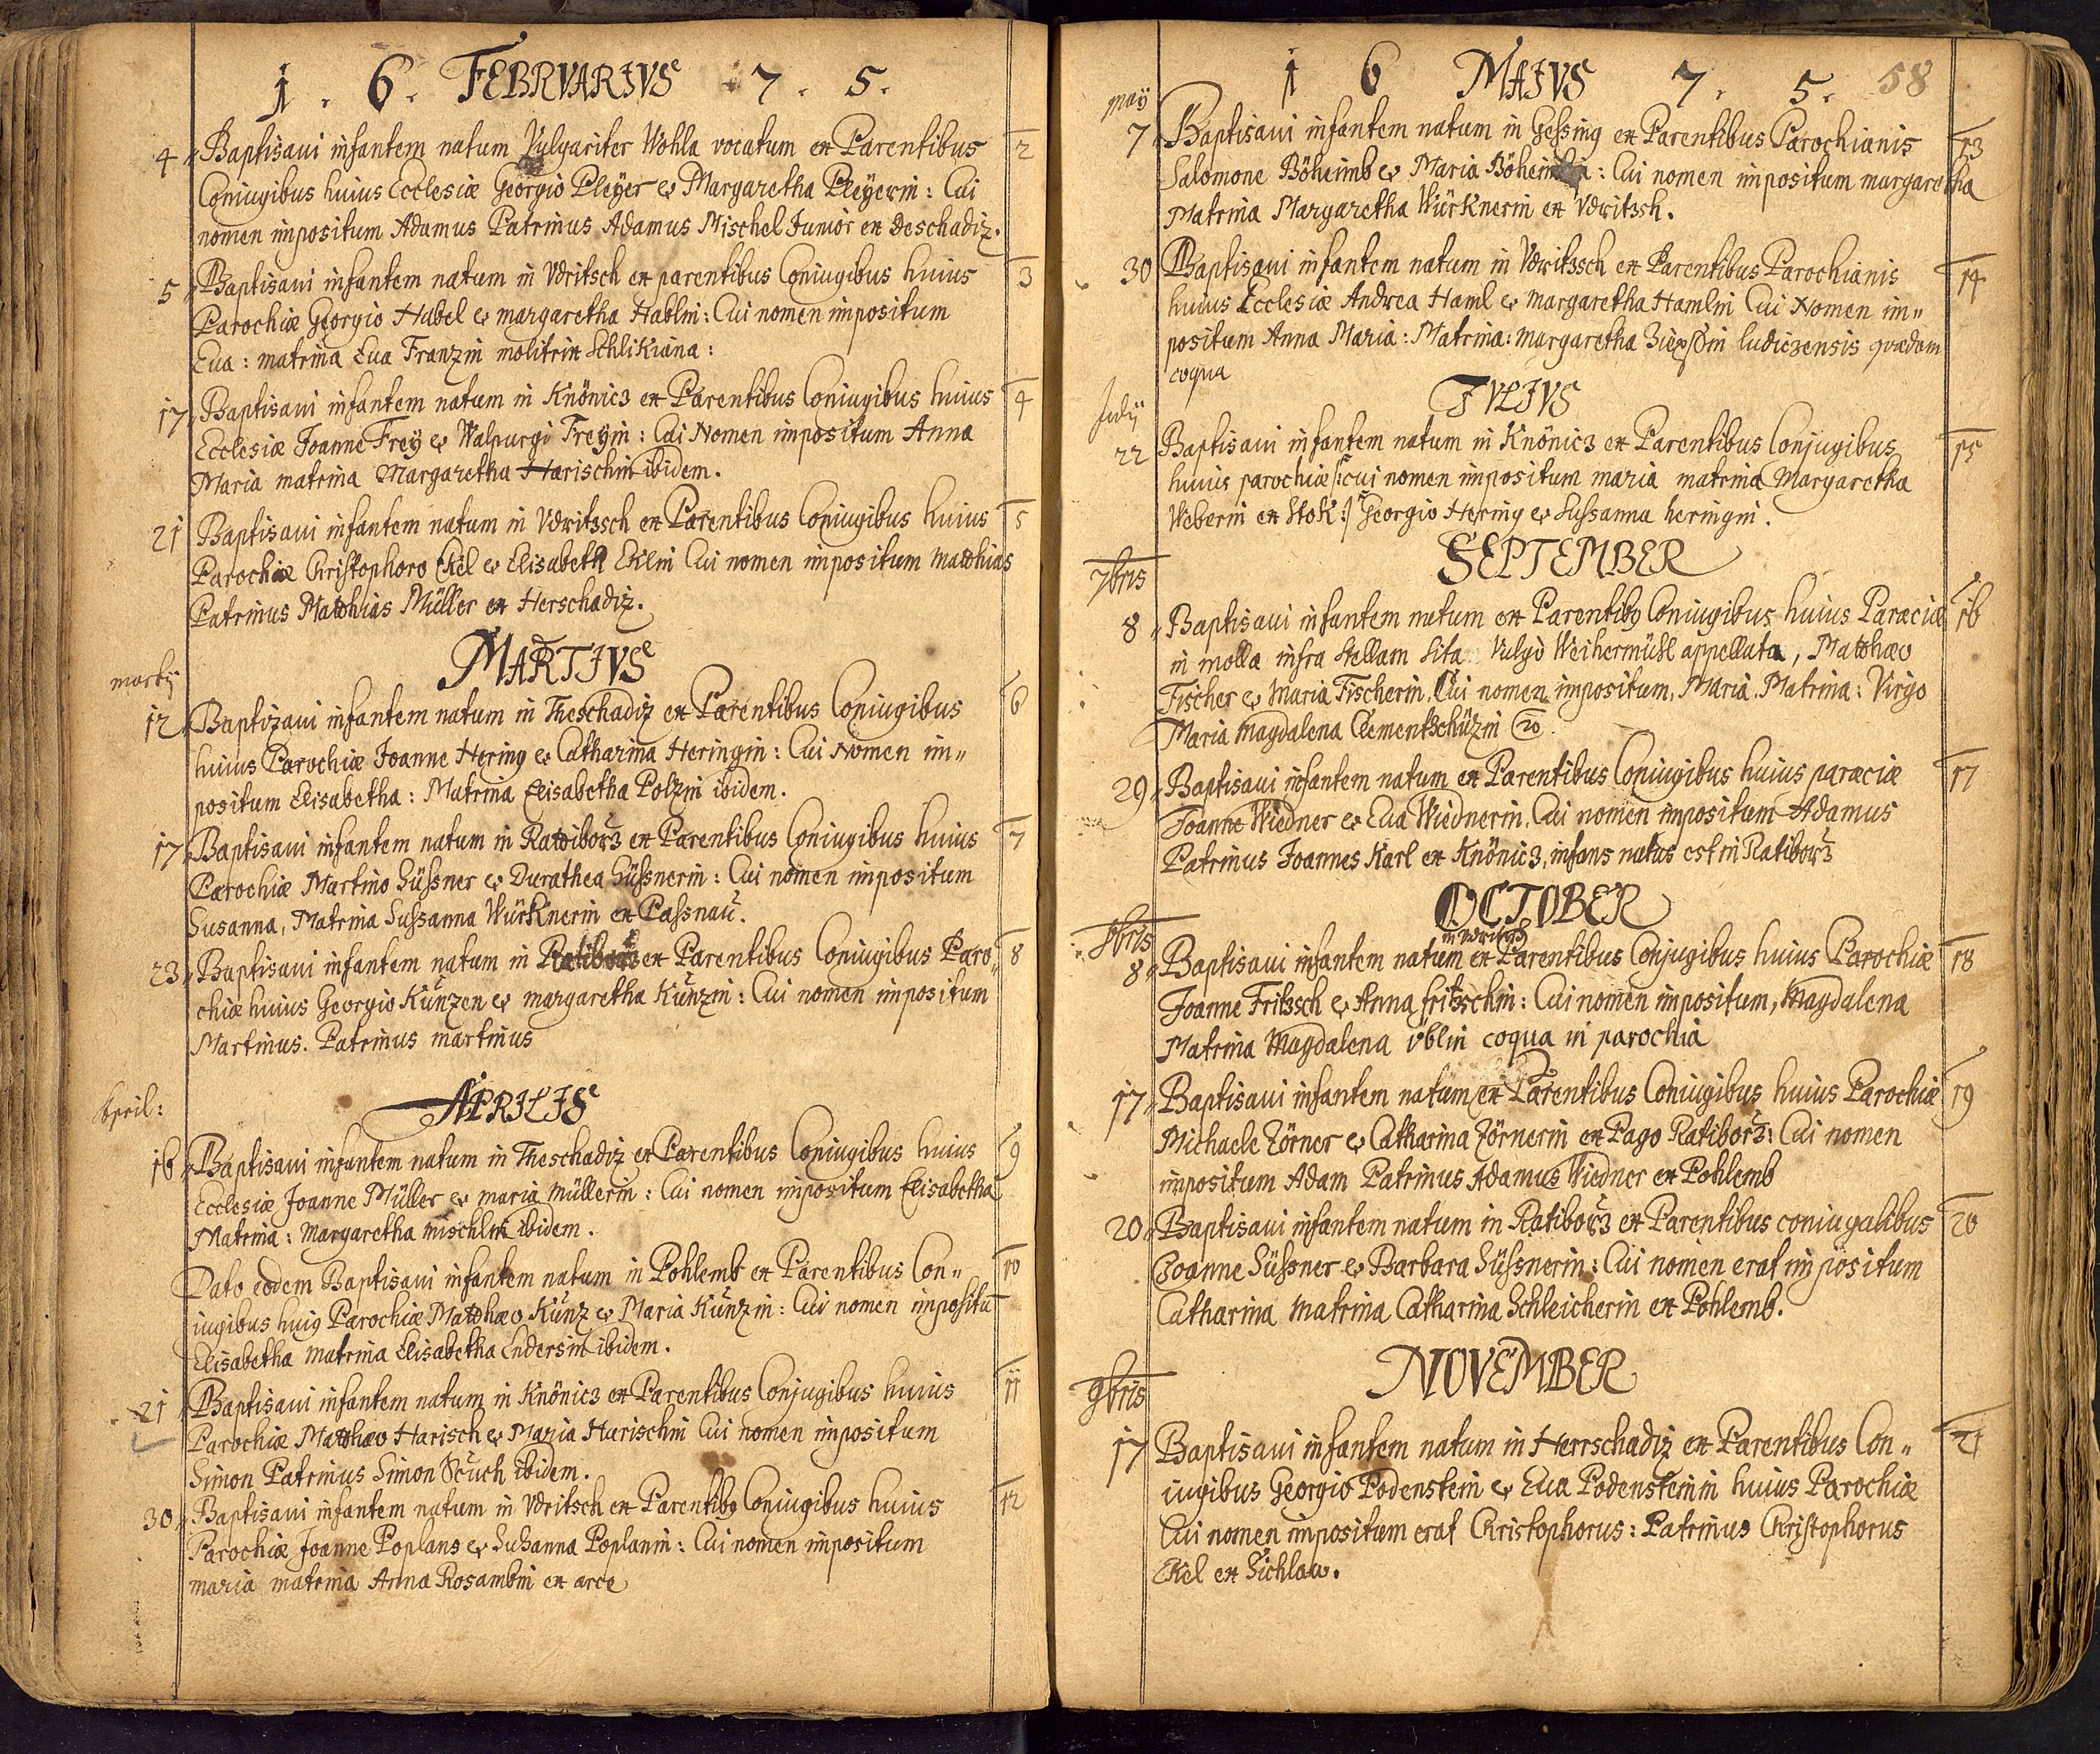 1. 6. FEBRVARIVS 7. 5.
4 Baptisaui infantem natum Vulgariter Wohla vocatum ex Parentibus 2
Coniugibus huius Ecclesiæ Georgio Pleÿer & Margaretha Pleÿerin: Cui
nomen impositum Adamus Patrinus Adamus Mischel Junior ex Deschadiz.
5 Baptisaui infantem natum in Vdritsch ex parentibus Coniugibus huius 3
Parochiæ Georgio Habel & margaretha Hablin: Cui nomen impositum
Eua: matrina Eua Franzin molitrix Schlikiana:
17 Baptisaui infantem natum in Knönicz ex Parentibus Coniugibus huius 4
Ecclesiæ Joanne Freÿ & Walpurgi Freÿin: Cui Nomen impositum Anna
Maria matrina Margaretha Harischin ibidem.
21 Baptisaui infantem natum in Vdritzsch ex Parentibus Coniugibus huius 5
Parochiæ Christophoro Ekel & Elisabeth Eklin Cui nomen impositum Matthias
Patrinus Matthias Müller ex Herschadiz.
MARTIVS
martij
12 Baptizaui infantem natum in Theschadiz ex Parentibus Coniugibus 6
huius Parochiæ Joanne Hering & Catharina Heringin: Cui Nomen im„
positum Elisabetha: Matrina Elisabetha Polzin ibidem.
17 Baptisaui infantem natum in Rattiborz ex Parentibus Coniugibus huius 7
Parochiæ Martino Süssner & Durathea Süssnerin: Cui nomen impositum
Susanna, Matrina Sussanna Würknerin ex Passnau.
23 Baptisaui infantem natum in Ratiborz ex Parentibus Coniugibus Paro„ 8
chiæ huius Georgio Kunzen & margaretha Kunzin: Cui nomen impositum
Martinus. Patrinus martinus
April:
APRILIS
16 Baptisaui infantem natum in Theschadiz ex Parentibus Coniugibus huius 9
Ecclesiæ Joanne Müller & maria Müllerin: Cui nomen impositum Elisabetha
Matrina: Margaretha mischlin ibidem.
Dato eodem Baptisaui infantem natum in Pohlemb ex Parentibus Con„ 10
iugibus huiꝰ Parochiæ Matthæo Kunz & Maria Kunzin: Cui nomen impositū
Elisabetha Matrina Elisabetha Endersin ibidem.
21 Baptisaui infantem natum in Knönicz ex Parentibus Conjugibus huius 11
Parochiæ Matthæo Harisch & Maria Harischin Cui nomen impositum
Simon Patrinus Simon ibidem.
30 Baptisaui infantem natum in Vdritsch ex Parentibꝰ Coniugibus huius 12
Parochiæ Joanne Poplans & Susanna Poplanin: Cui nomen impositum
maria matrina Anna Rosambin ex arce
1 6 MAIVS 7. 5. 58
maÿ
7 Baptisaui infantem natum in Gessing ex Parentibus Parochianis 13
Salomone Böheimb & Maria : Cui nomen impositum margaretha
Matrina Margaretha Würknerin ex Vdritzsch.
30 Baptisaui infantem natum in Vdritzsch ex Parentibus Parochianis 14
huius Ecclesiæ Andrea Haml & margaretha Hamlin Cui Nomen im„
positum Anna Maria: Matrina: margaretha ludiczensis quædam
coqua
Julij
JVLIVS
22 Baptisaui infantem natum in Knönicz ex Parentibus Conjugibus 15
huius parochiæ /: cui nomen impositum maria matrina Margaretha
Weberin ex Stok:/ Georgio Hering & Sussanna heringin.
SEPTEMBER
7bris
8 Baptisaui infantem natum ex Parentibꝰ Coniugibus huius Paræciæ 16
in molla infra Stellam Sita Vulgò Weihermühl appellata, Matthæo
Fischer & Maria Fischerin, Cui nomen impositum, Maria. Matrina: Virgo
Maria Magdalena Clementschüzin 20.
29 Baptisaui infantem natum ex Parentibus Coniugibus huius paræciæ 17
Joanne Wiedner & Eua Wiednerin, Cui nomen impositum Adamus
Patrinus Joannes Karl ex Knönicz, infans natus est in Ratiborz
OCTOBER
8bris
in Vdritsch
8 Baptisaui infantem natum ex Parentibus Conjugibus huius Parochiæ 18
Joanne Fritzsch & Anna fritzschin: Cui nomen impositum, Magdalena
Matrina Magdalena üblin coqua in parochia
17 Baptisaui infantem natum ex Parentibus Coniugibus huius Parochiæ 19
Michaele Zörner & Catharina Zörnerin ex Pago Ratiborz: Cui nomen
impositum Adam Patrinus Adamus Wiedner ex Pohlemb
20 Baptisaui infantem natum in Ratiborz ex Parentibus coniugalibus 20
Joanne Süssner & Barbara Süssnerin: Cui nomen erat impositum
Catharina Matrina Catharina Schleicherin ex Pohlemb.
NOVEMBER
9bris
17 Baptisaui infantem natum in Herrschadiz ex Parentibus Con„ 21
iugibus Georgio Podenstein & Eua Podensteinin huius Parochiæ
Cui nomen impositum erat Christophorus: Patrinus Christophorus
Ekel ex Sichlau.